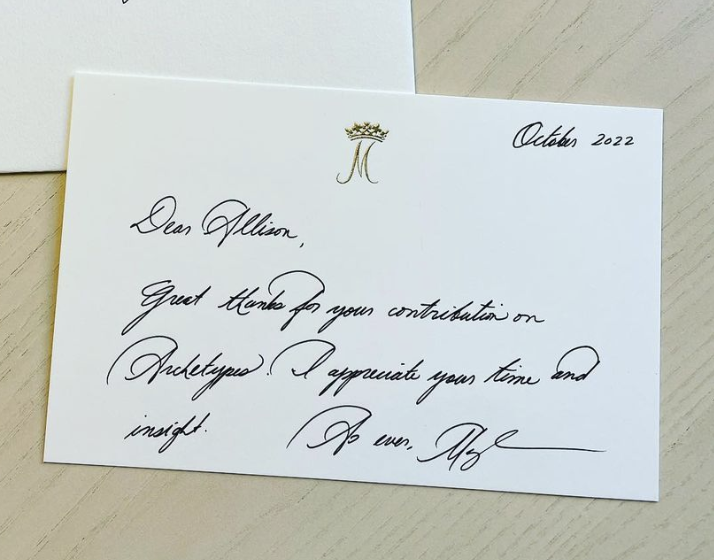 M
October 2022
Dear Allison,
Great thanks for your contribution on
Archetypes. I appreciate your time and
insight. As ever,